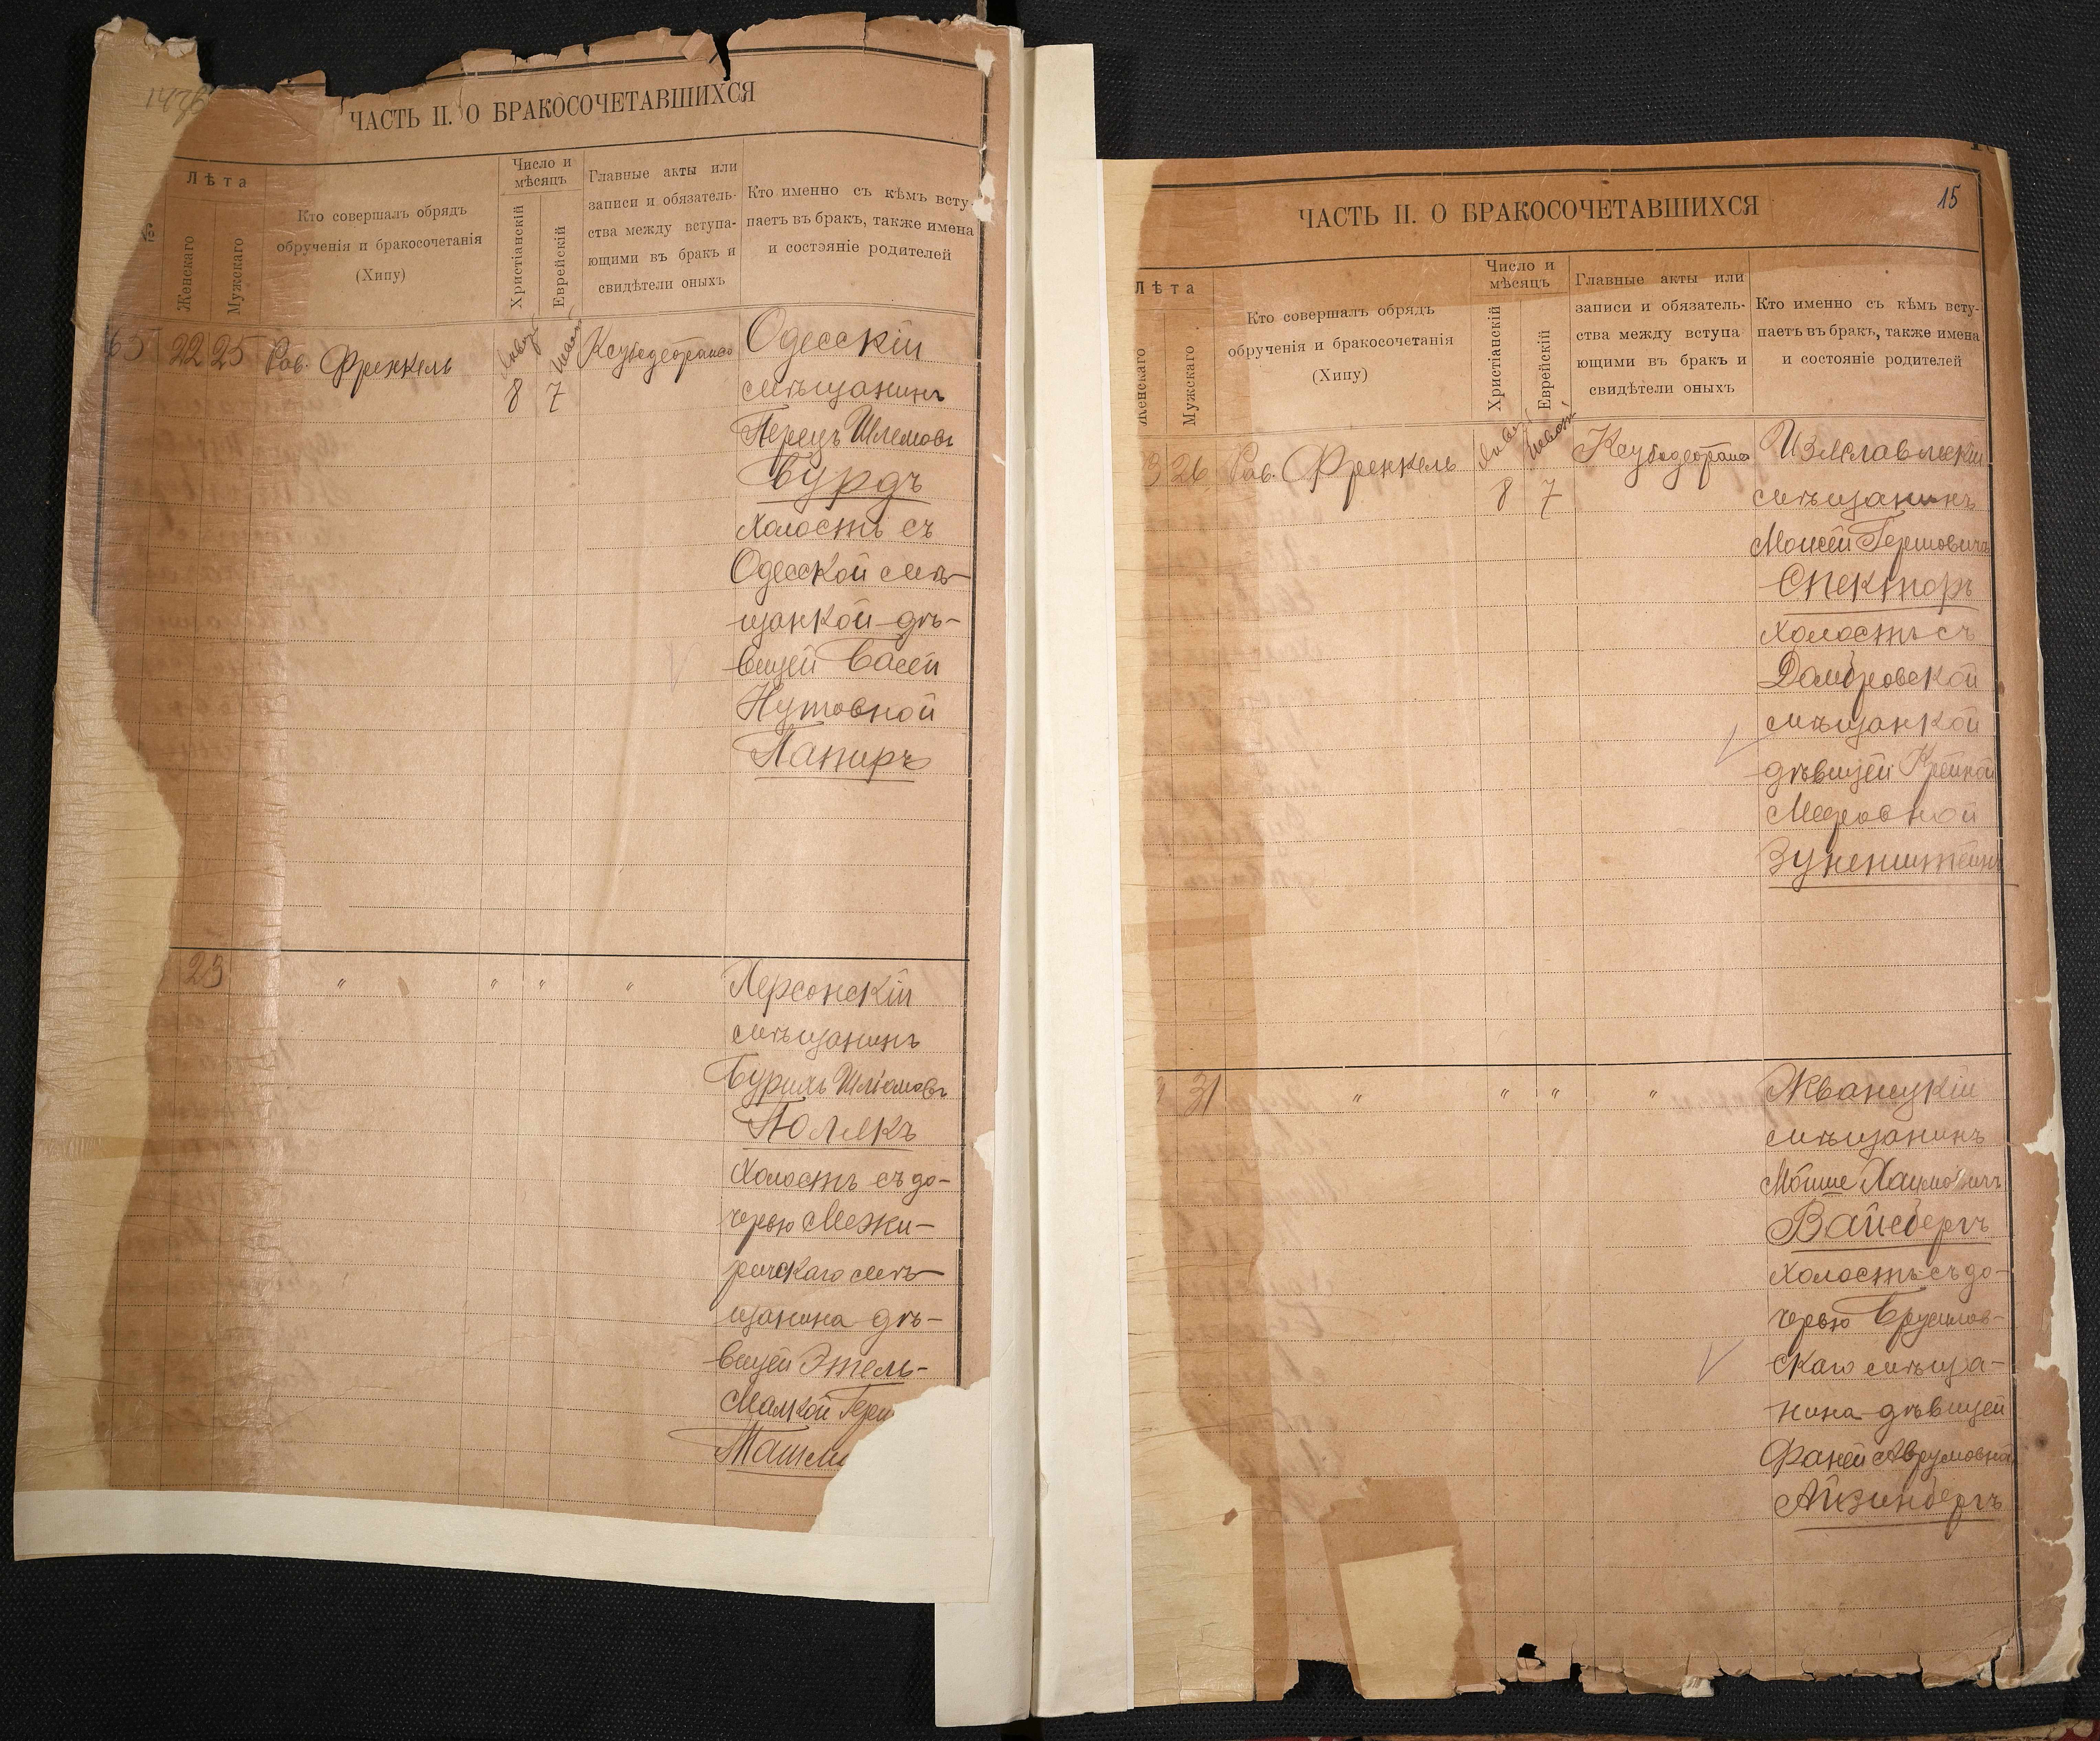 ЧАСТЬ II. О БРАКОСОЧЕТАВШИХСЯ
№
Лѣта
Женскаго
Мужскаго
Кто совершалъ обрядъ
обрученія и бракосочетанія
(Хипу)
Число и
мѣсяцъ
Христіанскій
Еврейскій
Главные акты или
записи и обязатель-
ства между вступа-
ющими въ бракъ и
свидѣтели оныхъ
Кто именно съ кѣмъ всту-
паетъ въ бракъ, также имена
и состояніе родителей
65 22 25 Рав. Френкель
8 7
Одесскій
мѣщанинъ
Перецъ Шлемовъ
Бурдъ
холостъ съ
Одесской мѣ-
щанкой дѣ-
вицей Басей
Нутовной
Папиръ
23 " " " "
Херсонскій
мѣщанинъ
Бурихъ Шліомовъ
Полякъ
холостъ съ до-
черью Межи-
ричскаго мѣ-
щанина дѣ-
вицей Этель-
Малкой
ЧАСТЬ II. О БРАКОСОЧЕТАВШИХСЯ
15
Лѣта
Женскаго
Мужскаго
Кто совершалъ обрядъ
обрученія и бракосочетанія
(Хипу)
Число и
мѣсяцъ
Христіанскій
Еврейскій
Главные акты или
записи и обязатель-
ства между вступа
ющими въ бракъ и
свидѣтели оныхъ
Кто именно съ кѣмъ всту-
паетъ въ бракъ, также имена
и состояніе родителей
26 Рав. Френкель
8 7
мѣщанинъ
Моисей Гершовичъ
Спекторъ
холостъ съ
Домбровской
мѣщанкой
дѣвицей Крейной
Мееровной
31 " " " "
Жванецкій
мѣщанинъ
Мойше Хаимовичъ
Вайсбергъ
холостъ съ до-
черью Брусилов-
скаго мѣща-
нина дѣвицей
Фаней Аврумовной
Айзинбергъ